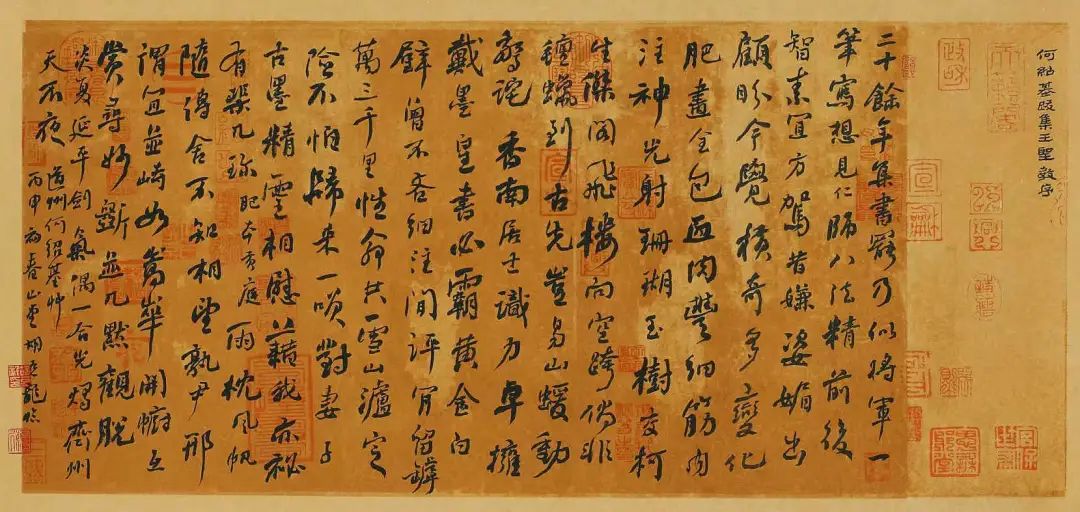 何紹基跋集王聖教序
二十餘年集書罷乃似將軍一
筆寫想見仁師八法精前後
智素宜方駕昔嫌姿媚出
顧盼今覺横奇多變化
肥畫全包血肉豐細筋内
注神光射珊瑚玉樹交柯
生閣飛樓向空跨倘非
到古先豈易山蝯動
驚詫香南居士識力卓擁
戴墨皇書必霸黄金白
璧曾不吝細注閒評肎留罅
萬三千里性命共雪山瀘定
險不怕歸来一唄對妻子
古墨精靈相慰藉我亦祕
有棐几珍肥本黄庭雨枕風帆
隨傳舍不知相望孰尹邢
謂宜並峙如嵩華開㡡互
賞尋妙斲並几默觀脱
炎夏延平劍氣偶一合光燭齊州
天不夜 道州何紹基草
丙申初春山東胡龍臨
政和
宣和